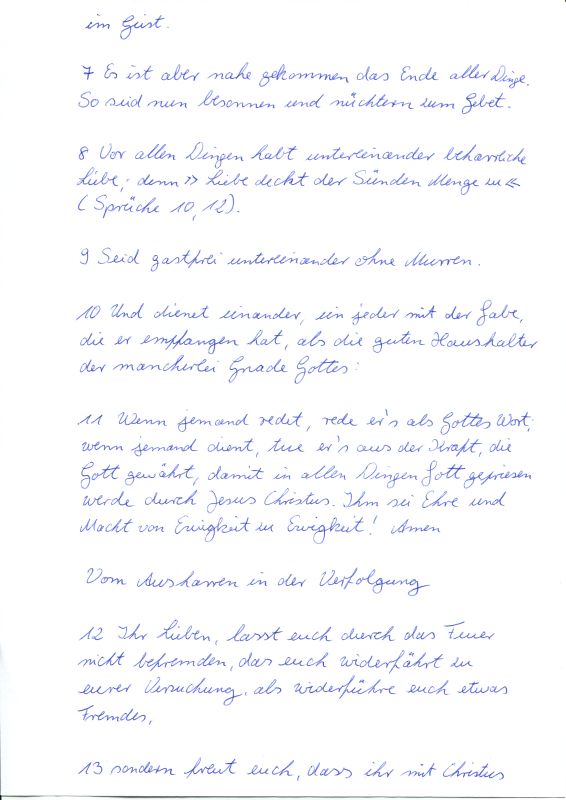 im Geist.
7 Es ist aber nahe gekommen das Ende aller Dinge.
So seid nun besonnen und nüchtern zum Gebet.
8 Vor allen Dingen habt untereinander beharrliche
Liebe; denn >> Liebe deckt der Sünden Menge zu <<
(Sprüche 10,12).
9 Seid gastfrei untereinander ohne Murren.
10 Und dienet einander, ein jeder mit der Gabe,
die er empfangen hat, als die guten Haushalter
der mancherlei Gnade Gottes:
11 Wenn jemand redet, rede er's als Gottes Wort;
wenn jemand dient, tue er's aus der Kraft, die
Gott gewährt, damit in allen Dingen Gott gepriesen
werde durch Jesus Christus. Ihm sei Ehre und
Macht von Ewigkeit zu Ewigkeit! Amen
Vom Ausharren in der Verfolgung
12 Ihr Lieben, lasst euch durch das Feuer
nicht befremden, das euch widerfährt zu
eurer Versuchung, als widerführe euch etwas
Fremdes,
13 sondern freut euch, dass ihr mit Christus